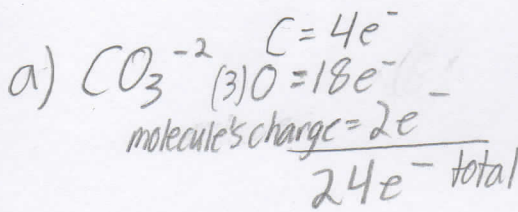 C = 4e⁻
a) CO₃⁻² (3)O = 18e⁻
molecule's charge = 2e⁻
24e⁻ total